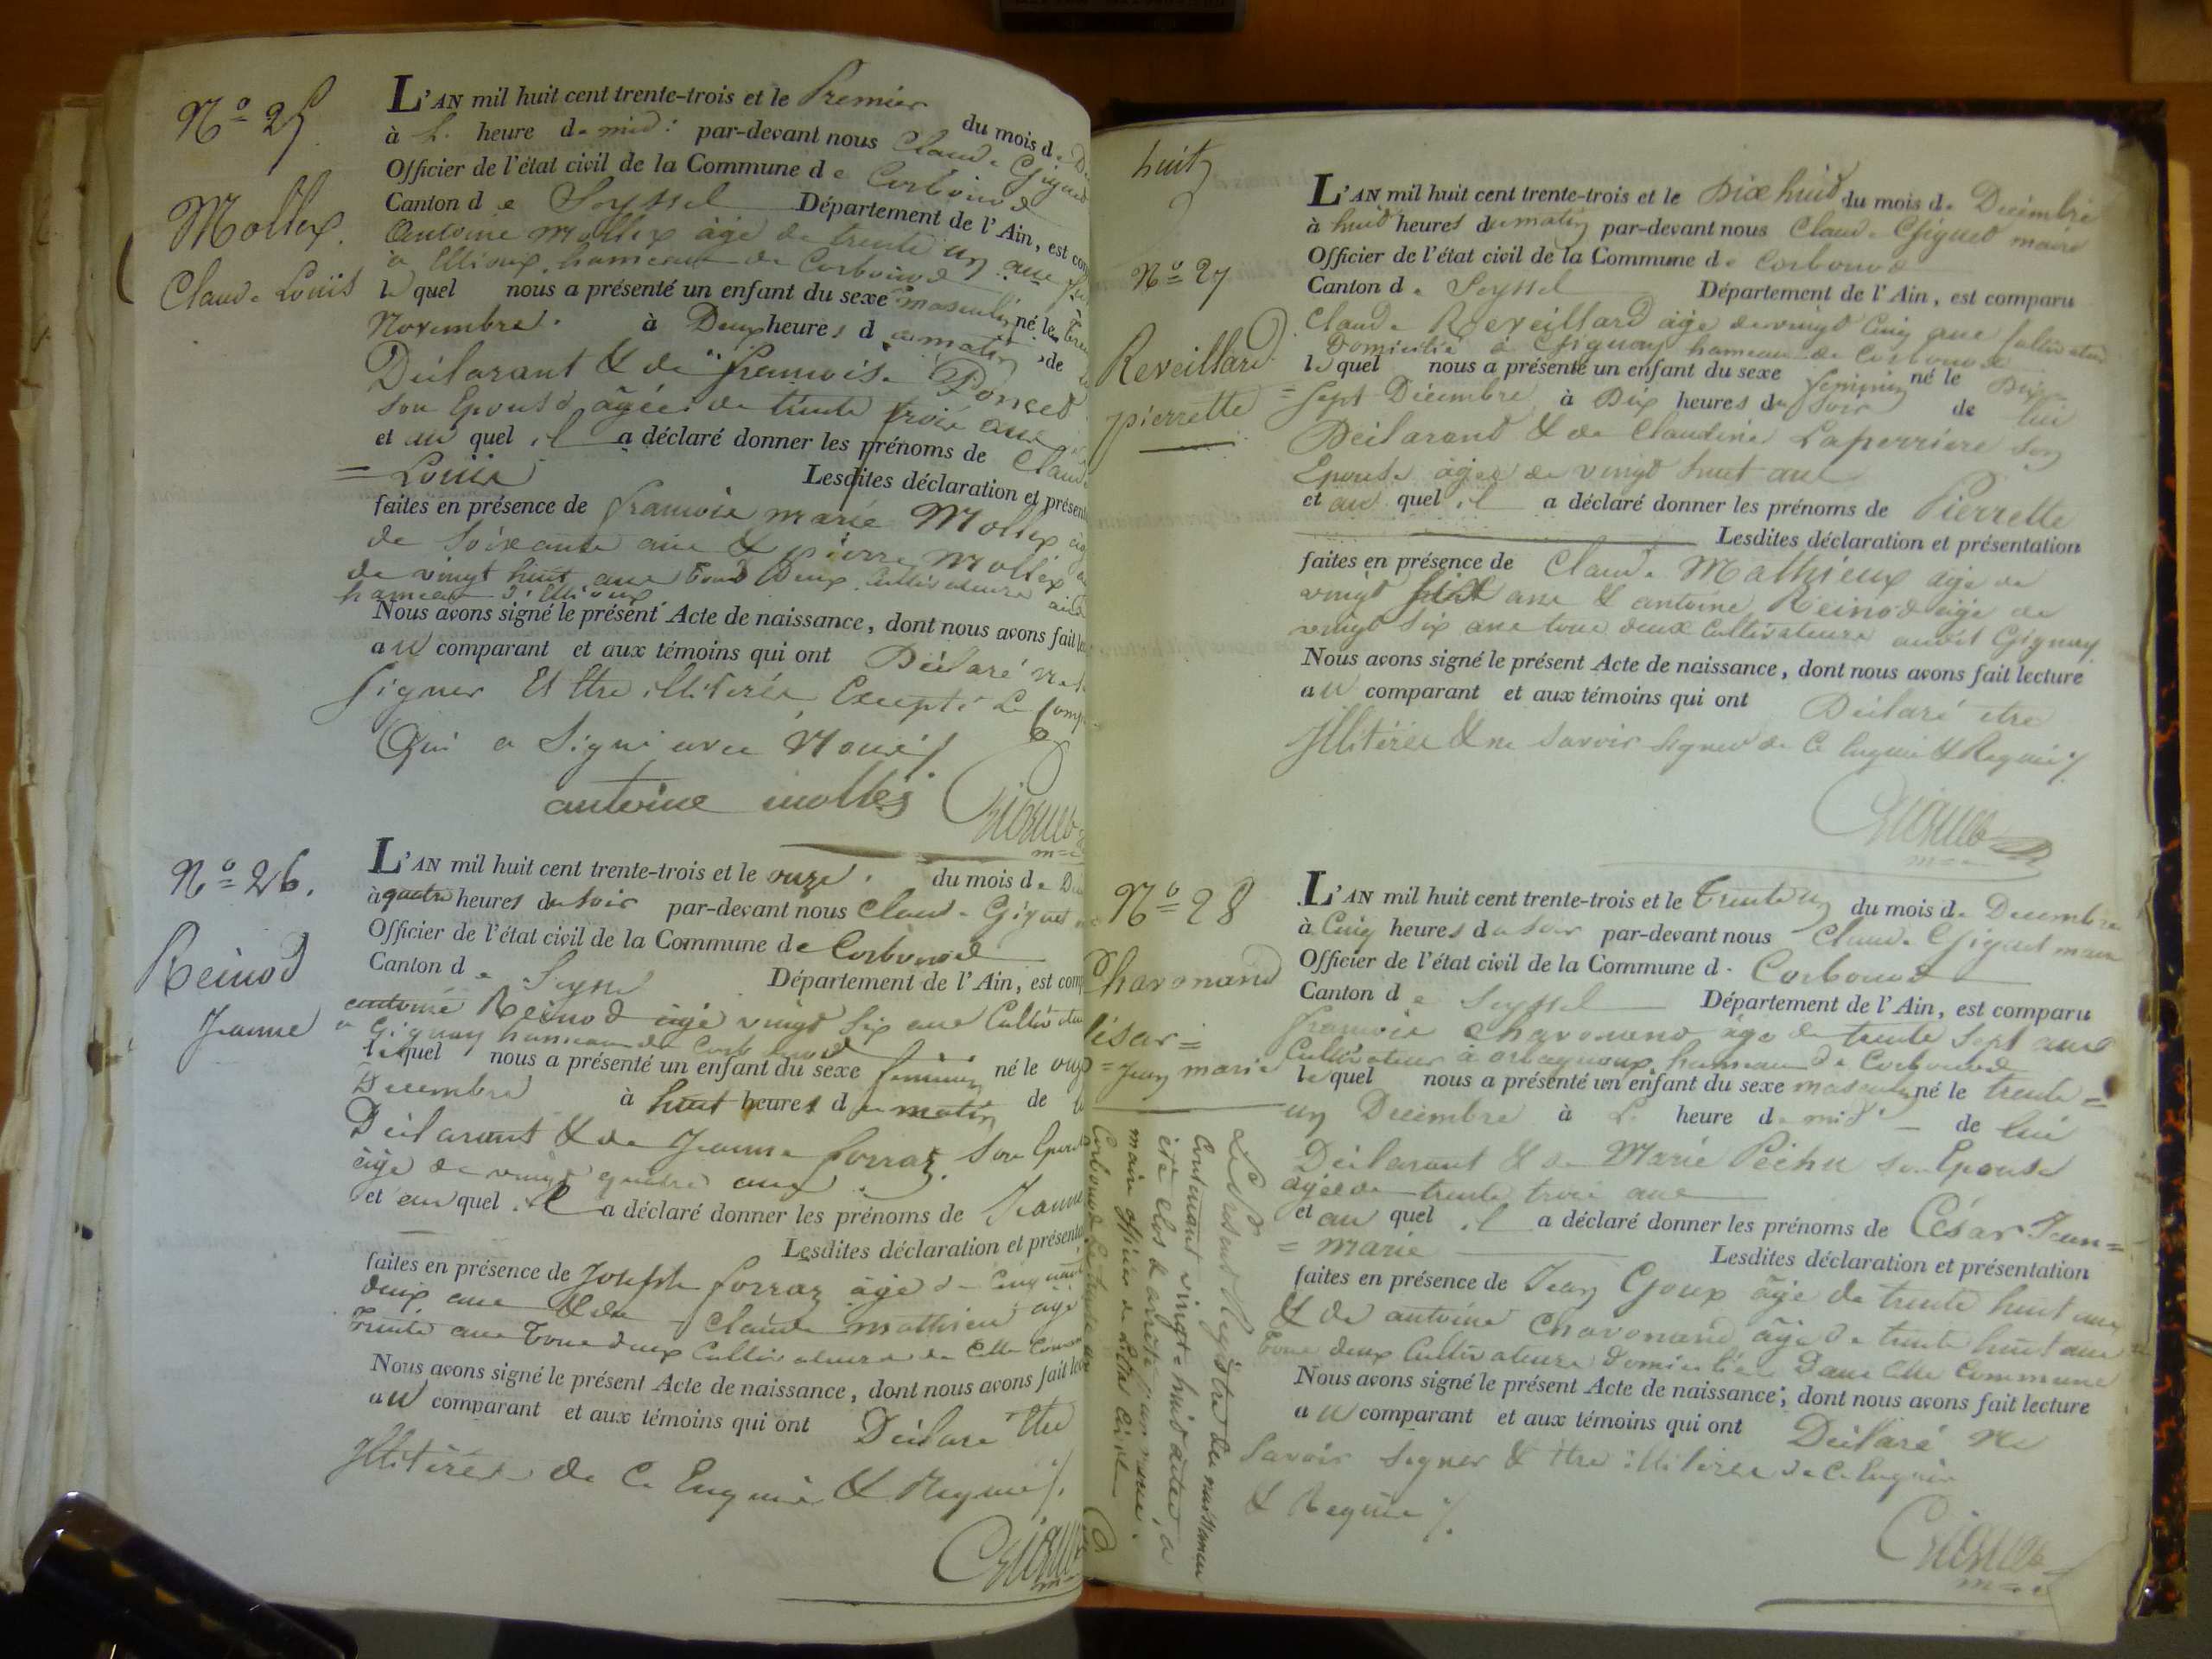 N° 25
Mollex
Claude Louis
L'AN mil huit cent trente-trois et le Premier du mois de
à l. heure de midi par-devant nous Claude Giguet
Officier de l'état civil de la Commune de Corbonod
Canton de Seyssel Département de l'Ain, est
Antoine Mollex âgé de trente un ans
à Etlioux hameau de Corbonod
lequel nous a présenté un enfant du sexe masculin né le
Novembre à Deux heures du matin de
Déclarant & de françoise Poncet
son Epouse âgée de trente trois ans
et au quel il a déclaré donner les prénoms de Claude
= Louis Lesdites déclaration et
faites en présence de françois marie Mollex
de soixante ans & pierre Mollex
de vingt huit ans tous Deux Cultivateurs
hameau d'Etlioux
Nous avons signé le présent Acte de naissance, dont nous avons fait
au comparant et aux témoins qui ont Déclaré ne
signer Et être illitérés Excepté Le
Qui a signé avec Nous
antoine mollex Giguet
N° 26.
Reinod
Jeanne
L'AN mil huit cent trente-trois et le onze du mois de
à quatre heures du soir par-devant nous Claude Giguet
Officier de l'état civil de la Commune de Corbonod
Canton de Seyssel Département de l'Ain, est
antoine Reinod âgé vingt six ans
à Gignay hameau de Corbonod
lequel nous a présenté un enfant du sexe feminin né le onze
Decembre à huit heures du matin de
Déclarant & de Jeanne forraz son
âgé de vingt quatre ans
et au quel il a déclaré donner les prénoms de Jeanne
Lesdites déclaration et
faites en présence de Joseph forraz âgé de
deux ans & de Claude mathieu âgé
trente ans tous deux Cultivateurs de Cette
Nous avons signé le présent Acte de naissance, dont nous avons fait
au comparant et aux témoins qui ont Déclaré être
Illitérés de Ce Enquis & Requis
Giguet
huit
N° 27
Reveillard
pierrette
L'AN mil huit cent trente-trois et le Dix huit du mois de Decembre
à huit heures du matin par-devant nous Claude Giguet maire
Officier de l'état civil de la Commune de Corbonod
Canton de Seyssel Département de l'Ain, est comparu
Claude Reveillard âgé de vingt Cinq ans Cultivateur
Domicilié à Gignay hameau de Corbonod
lequel nous a présenté un enfant du sexe feminin né le Dix
= sept Décembre à Dix heures du soir de lui
Déclarant & de Claudine Laperriere son
Epouse âgée de vingt huit ans
et au quel il a déclaré donner les prénoms de Pierrette
Lesdites déclaration et présentation
faites en présence de Claude Mathieux âgé de
vingt ans & antoine Reinod âgé de
vingt six ans tous deux Cultivateurs audit Gignay
Nous avons signé le présent Acte de naissance, dont nous avons fait lecture
au comparant et aux témoins qui ont Déclaré être
Illitérés & ne savoir signer de Ce Enquis & Requis
Giguet
N° 28
Chavonand
César =
= Jean marie
L'AN mil huit cent trente-trois et le trente un du mois de Decembre
à Cinq heures du soir par-devant nous Claude Giguet maire
Officier de l'état civil de la Commune de Corbonod
Canton de Seyssel Département de l'Ain, est comparu
françois Chavonand âgé de trente sept ans
Cultivateur à orbagnoux hameau de Corbonod
lequel nous a présenté un enfant du sexe masculin né le trente =
un Decembre à l. heure de midi de lui
Déclarant & de Marie Péchu son Epouse
âgée de trente trois ans
et au quel il a déclaré donner les prénoms de César Jean =
= marie Lesdites déclaration et présentation
faites en présence de Jean Goux âgé de trente huit ans
& de antoine Chavonand âgé de trente huit ans
tous deux Cultivateurs Domiciliés Dans Cette Commune
Nous avons signé le présent Acte de naissance, dont nous avons fait lecture
au comparant et aux témoins qui ont Déclaré ne
savoir signer & être illitérés de Ce Enquis
& Requis
Giguet
Le présent Registre des naissances
Contenant vingt = huit actes, a
été clos & arrêté par nous
maire officier de l'état Civil
Corbonod le trente un